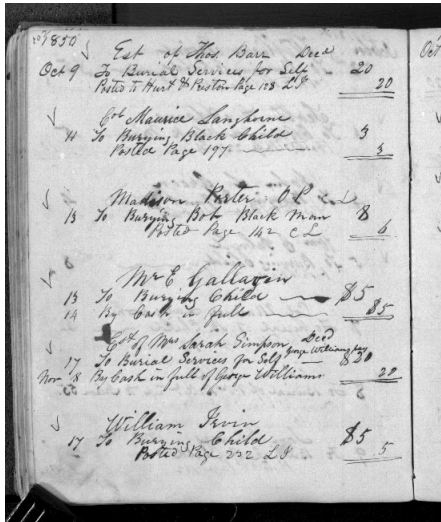 1850
Est of Thos. Barr Decd
Oct 9 To Burial Services for Self 20
Posted to Hurt & Preston Page 128 L I 20
Col Maurice Langhorne
11 To Burying Black Child 3
Posted Page 197 3
Madison Porter O P
13 To Burying Bob Black Man 8
Posted Page 142 C L 6
Mr E Gallavin
13 To Burying Child $5
14 By Cash in full $5
Est of Mrs Sarah Simpson Decd
George Williams
17 To Burial Services for Self $30
Nov 8 By Cash in full of George Williams 20
William Irvin
17 To Burying Child $5
Posted Page 222 L I 5
Oct